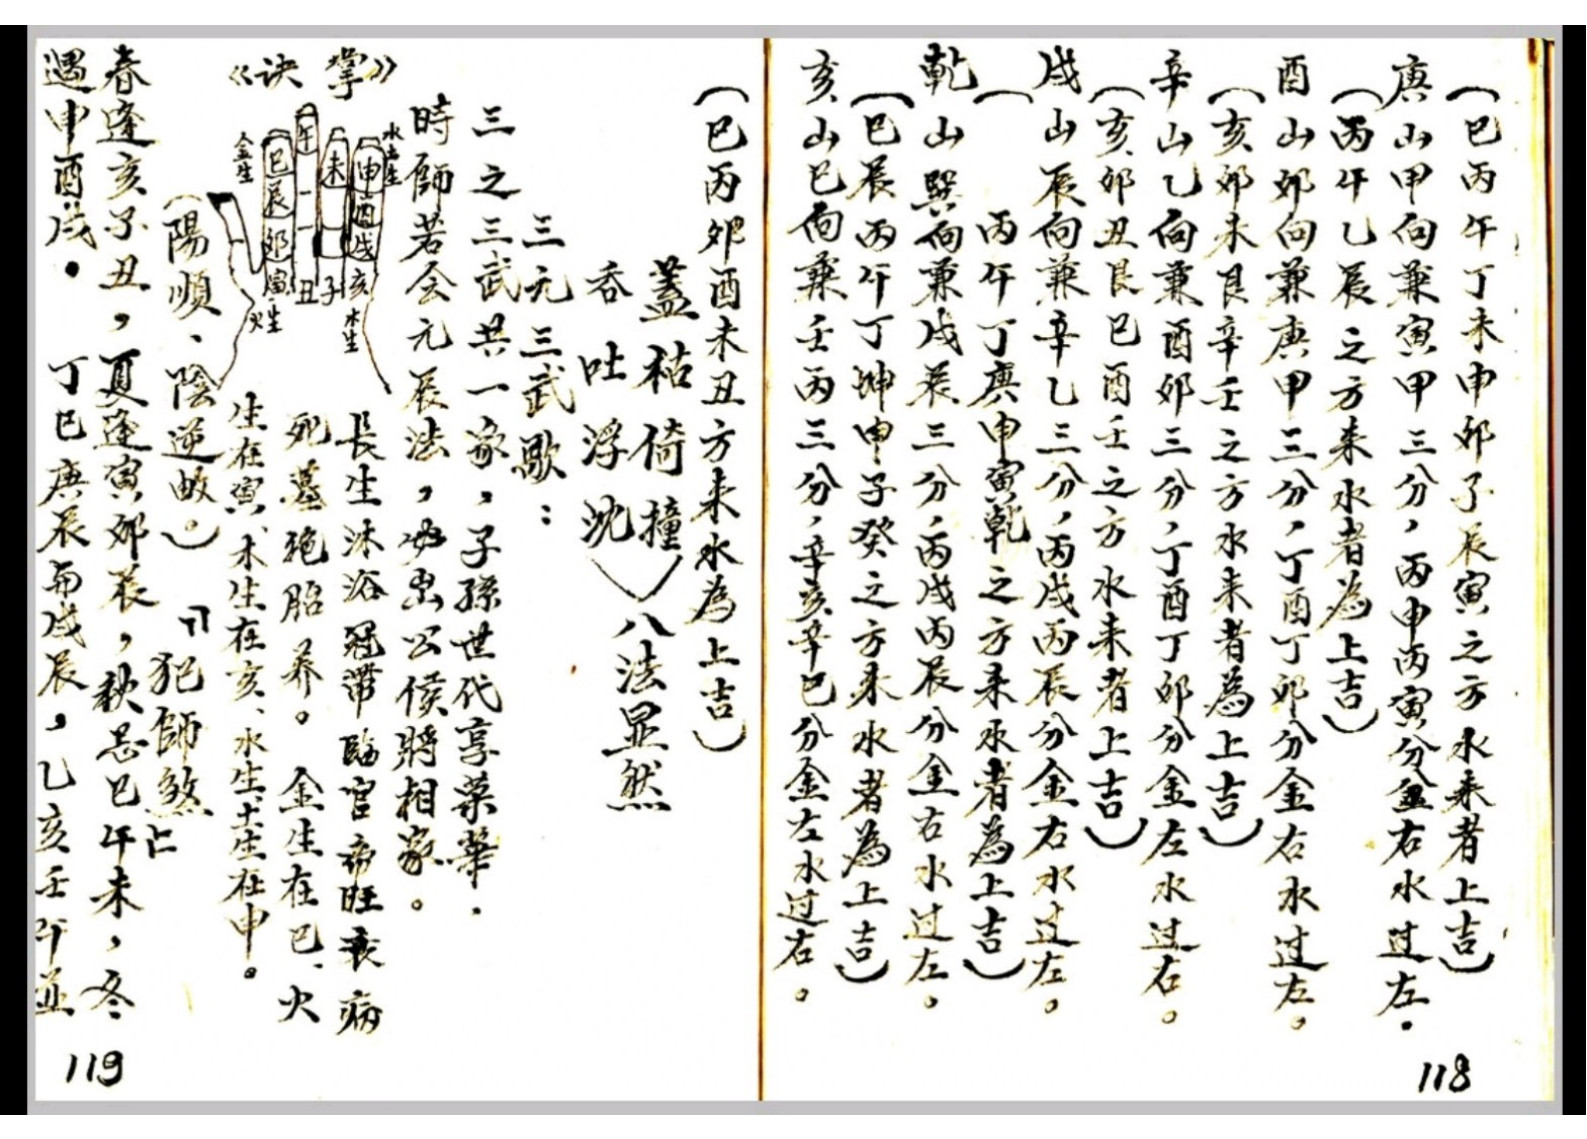 (巳丙午丁未申卯子辰寅之方水来者上吉)
庚山甲向兼寅甲三分，丙申丙寅分金右水过左。
(丙午乙辰之方来水者為上吉)
酉山卯向兼庚甲三分，丁酉丁卯分金右水过左。
(亥卯未艮辛壬之方水来者為上吉)
辛山乙向兼酉卯三分，丁酉丁卯分金左水过右。
(亥卯丑艮巳酉壬之方水来者上吉)
戌山辰向兼辛乙三分，丙戌丙辰分金右水过左。
(丙午丁庚申寅乾之方来水者為上吉)
乾山巽向兼戌辰三分，丙戌丙辰分金右水过左。
(巳辰丙午丁坤申子癸之方来水者為上吉)
亥山巳向兼壬丙三分，辛亥辛巳分金左水过右。
118
(巳丙卯酉未丑方来水為上吉)
蓋枯倚撞
吞吐浮沈
八法显然
三元三武歌：
三之三武共一家，子孫世代享荣華，
時師若会元辰法，必出公侯將相家。
《掌诀》
水土生
金生
木生
火生
申酉戌亥
未
午
巳辰卯寅
丑子
長生沐浴冠带臨官帝旺衰病
死墓绝胎养。金生在巳、火
生在寅、木生在亥、水生土生在申。
(陽順、陰逆)
「犯師煞」
春逢亥子丑，夏逢寅卯辰，秋忌巳午未，冬
遇申酉戌。丁巳庚辰与戌辰，乙亥壬午並
119